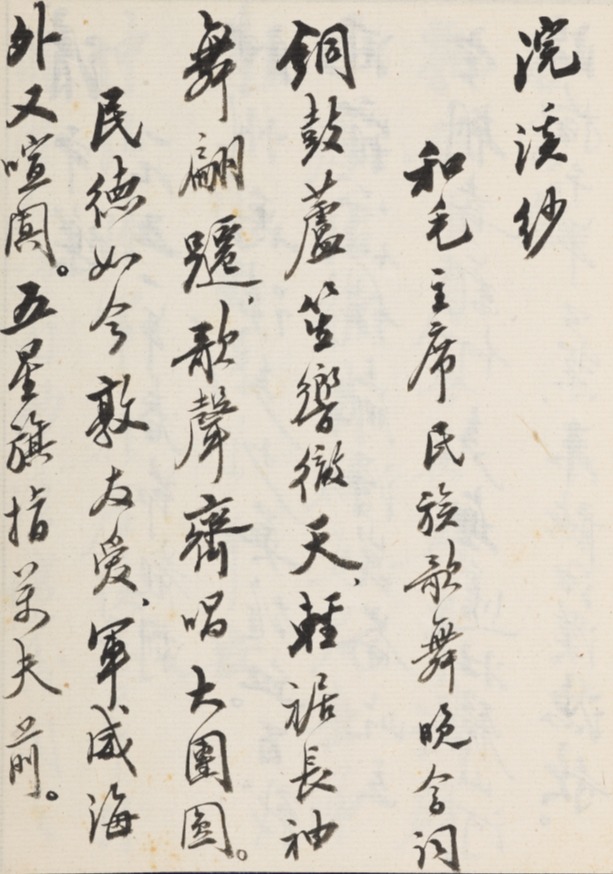 浣溪纱
和毛主席民族歌舞晚会词
銅鼓蘆笙響徹天，輕裾長袖
舞翩躚，歌聲齊唱大團圆。
民德如今敦友爱，軍威海
外又喧闐。五星旗指萬夫前。